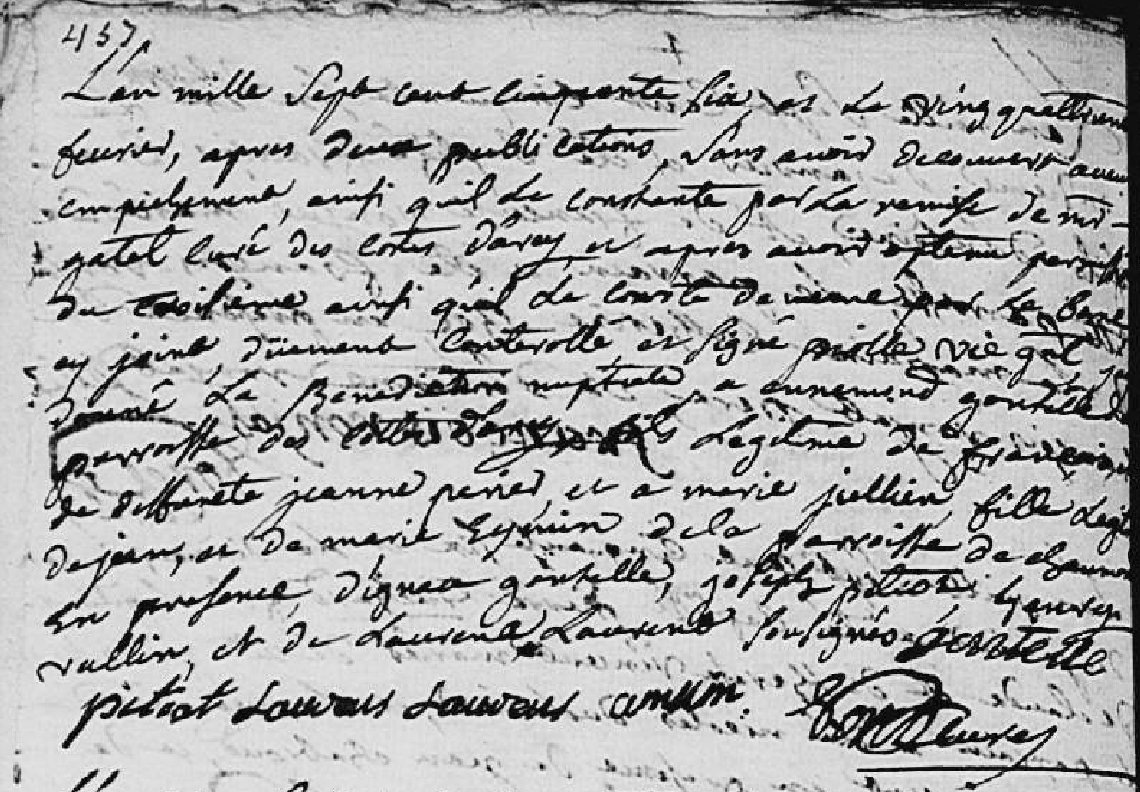 457
L'an mille sept cent cinquante six et le vingquattrieme
fevrier, apres deux publications, sans avoir decouvert aucun
empechement, ainsi quil le constante par la remise de mr
gatel curé des costes d'arey et apres avoir optenu
du troisieme ainsi quil de vienne par le
cy joint, düement conterollé et signé vic gal
donné la Benediction nuptiale, a ennemond gontelle
parroisse des costes d'arey, fils legitime de francois
de deffunte jeanne perier, et a marie jullien fille legit
de jean, et de marie Eymin de la parroisse de
en presence d'ignace gontelle, joseph pitiot,
vallin, et de Laurent Laurent soussignés gentelle
pitiot Lourans Lourans curé